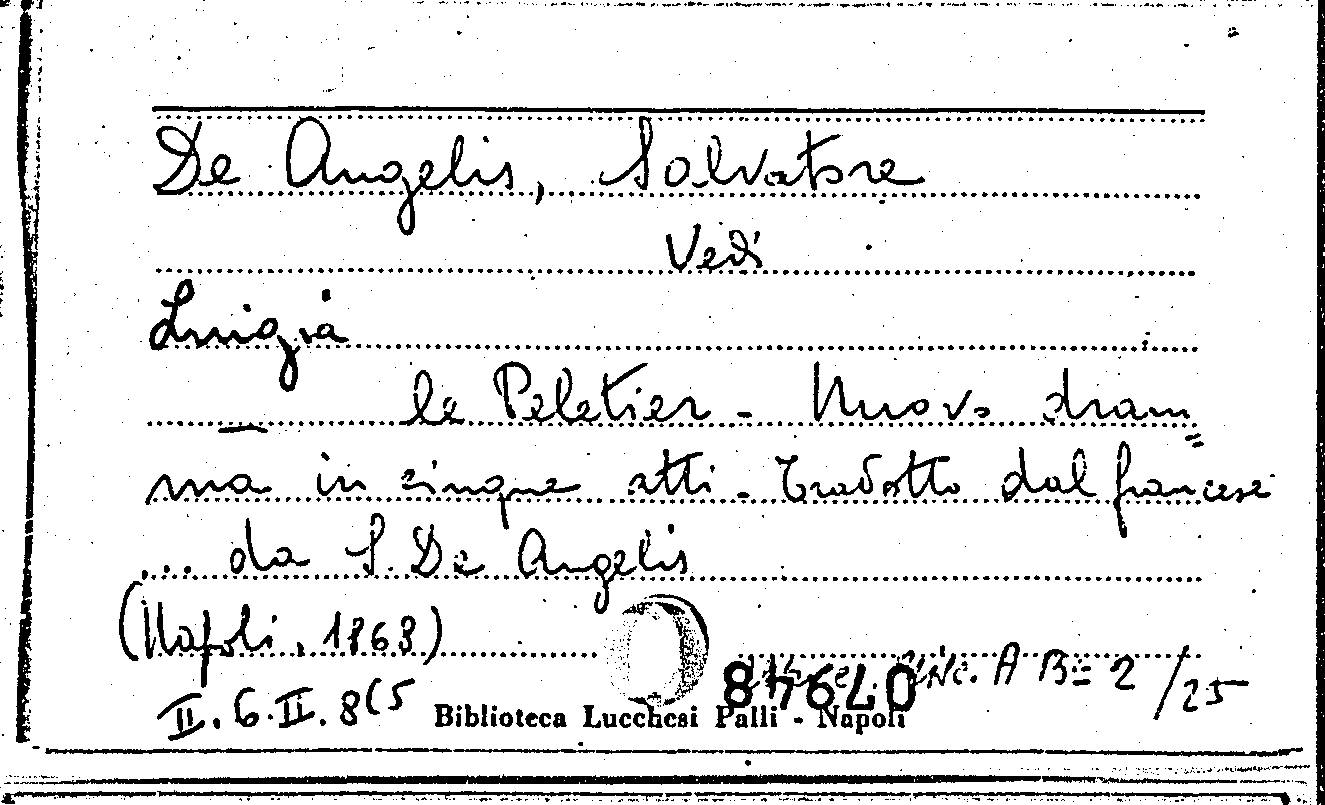 De Angelis, Salvatore
Vedi
Luigia
le Peletier - Nuovo dram=
ma in cinque atti - Tradotto dal francese
... da S. De Angelis
(Napoli, 1868)
Misc. A B= 2/25
079448
II. 6. II. 8(5
Biblioteca Lucchesi Palli - Napoli